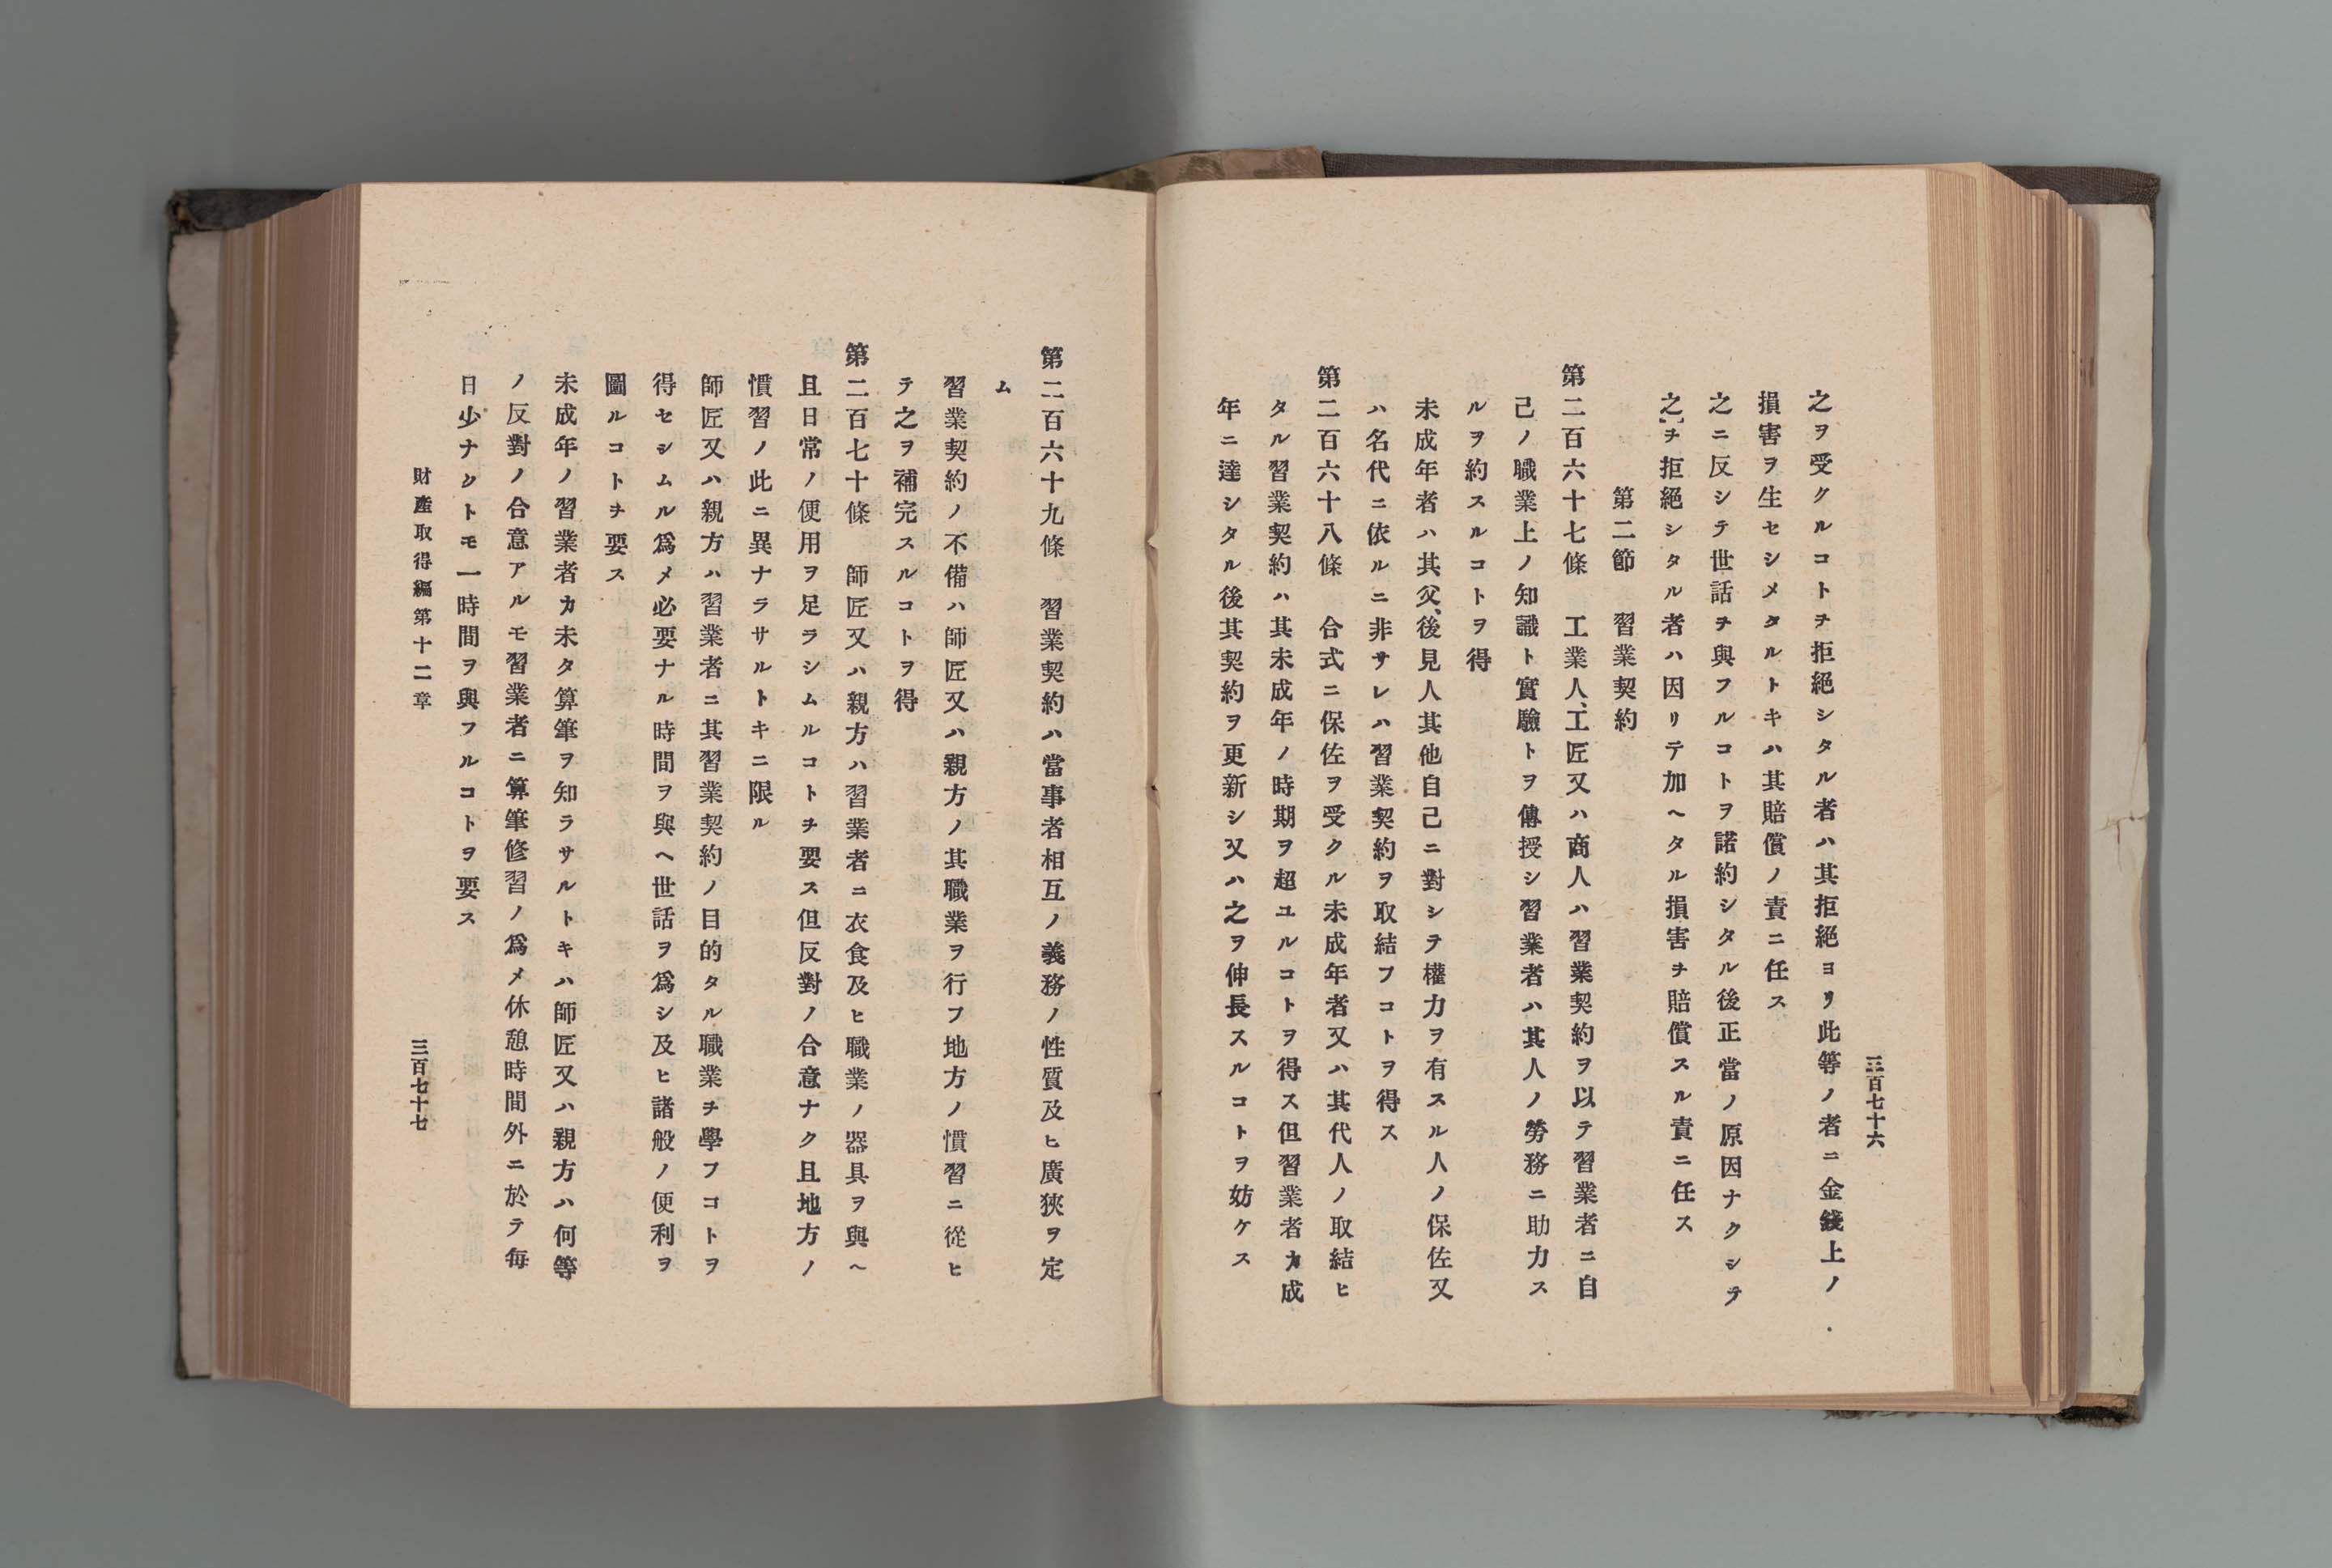 三百七十六
之ヲ受クルコトヲ拒絕シタル者ハ其拒絕ヨリ此等ノ者ニ金錢上ノ
損害ヲ生セシメタルトキハ其賠償ノ責ニ任ス
之ニ反シテ世話ヲ與フルコトヲ諾約シタル後正當ノ原因ナクシテ
之ヲ拒絕シタル者ハ因リテ加ヘタル損害ヲ賠償スル責ニ任ス
第二節　習業契約
第二百六十七條　工業人、工匠又ハ商人ハ習業契約ヲ以テ習業者ニ自
己ノ職業上ノ知識ト實驗トヲ傳授シ習業者ハ其人ノ勞務ニ助力ス
ルヲ約スルコトヲ得
未成年者ハ其父、後見人其他自己ニ對シテ權力ヲ有スル人ノ保佐又
ハ名代ニ依ルニ非サレハ習業契約ヲ取結フコトヲ得ス
第二百六十八條　合式ニ保佐ヲ受クル未成年者又ハ其代人ノ取結ヒ
タル習業契約ハ其未成年ノ時期ヲ超ユルコトヲ得ス但習業者カ成
年ニ達シタル後其契約ヲ更新シ又ハ之ヲ伸長スルコトヲ妨ケス
第二百六十九條　習業契約ハ當事者相互ノ義務ノ性質及ヒ廣狹ヲ定
ム
習業契約ノ不備ハ師匠又ハ親方ノ其職業ヲ行フ地方ノ慣習ニ從ヒ
テ之ヲ補完スルコトヲ得
第二百七十條　師匠又ハ親方ハ習業者ニ衣食及ヒ職業ノ器具ヲ與ヘ
且日常ノ便用ヲ足ラシムルコトヲ要ス但反對ノ合意ナク且地方ノ
慣習ノ此ニ異ナラサルトキニ限ル
師匠又ハ親方ハ習業者ニ其習業契約ノ目的タル職業ヲ學フコトヲ
得セシムル爲メ必要ナル時間ヲ與ヘ世話ヲ爲シ及ヒ諸般ノ便利ヲ
圖ルコトヲ要ス
未成年ノ習業者カ未タ算筆ヲ知ラサルトキハ師匠又ハ親方ハ何等
ノ反對ノ合意アルモ習業者ニ算筆修習ノ爲メ休憩時間外ニ於テ每
日少ナクトモ一時間ヲ與フルコトヲ要ス
財產取得編第十二章
三百七十七